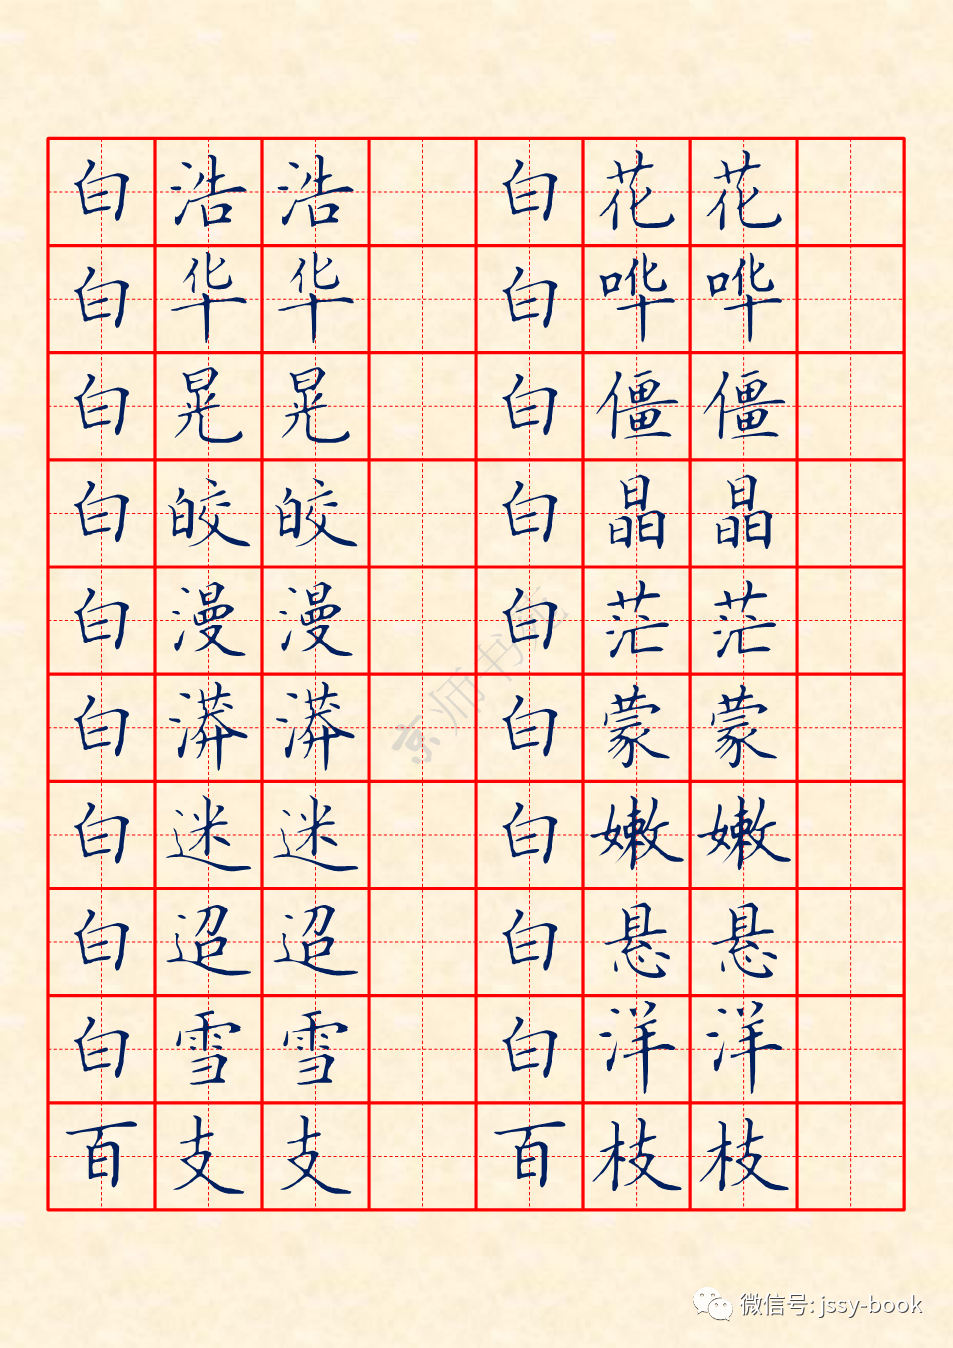 白浩浩 白花花
白华华 白哗哗
白晃晃 白僵僵
白皎皎 白晶晶
白漫漫 白茫茫
白漭漭 白蒙蒙
白迷迷 白嫩嫩
白迢迢 白悬悬
白雪雪 白洋洋
百支支 百枝枝
京师书苑
微信号: jssy-book